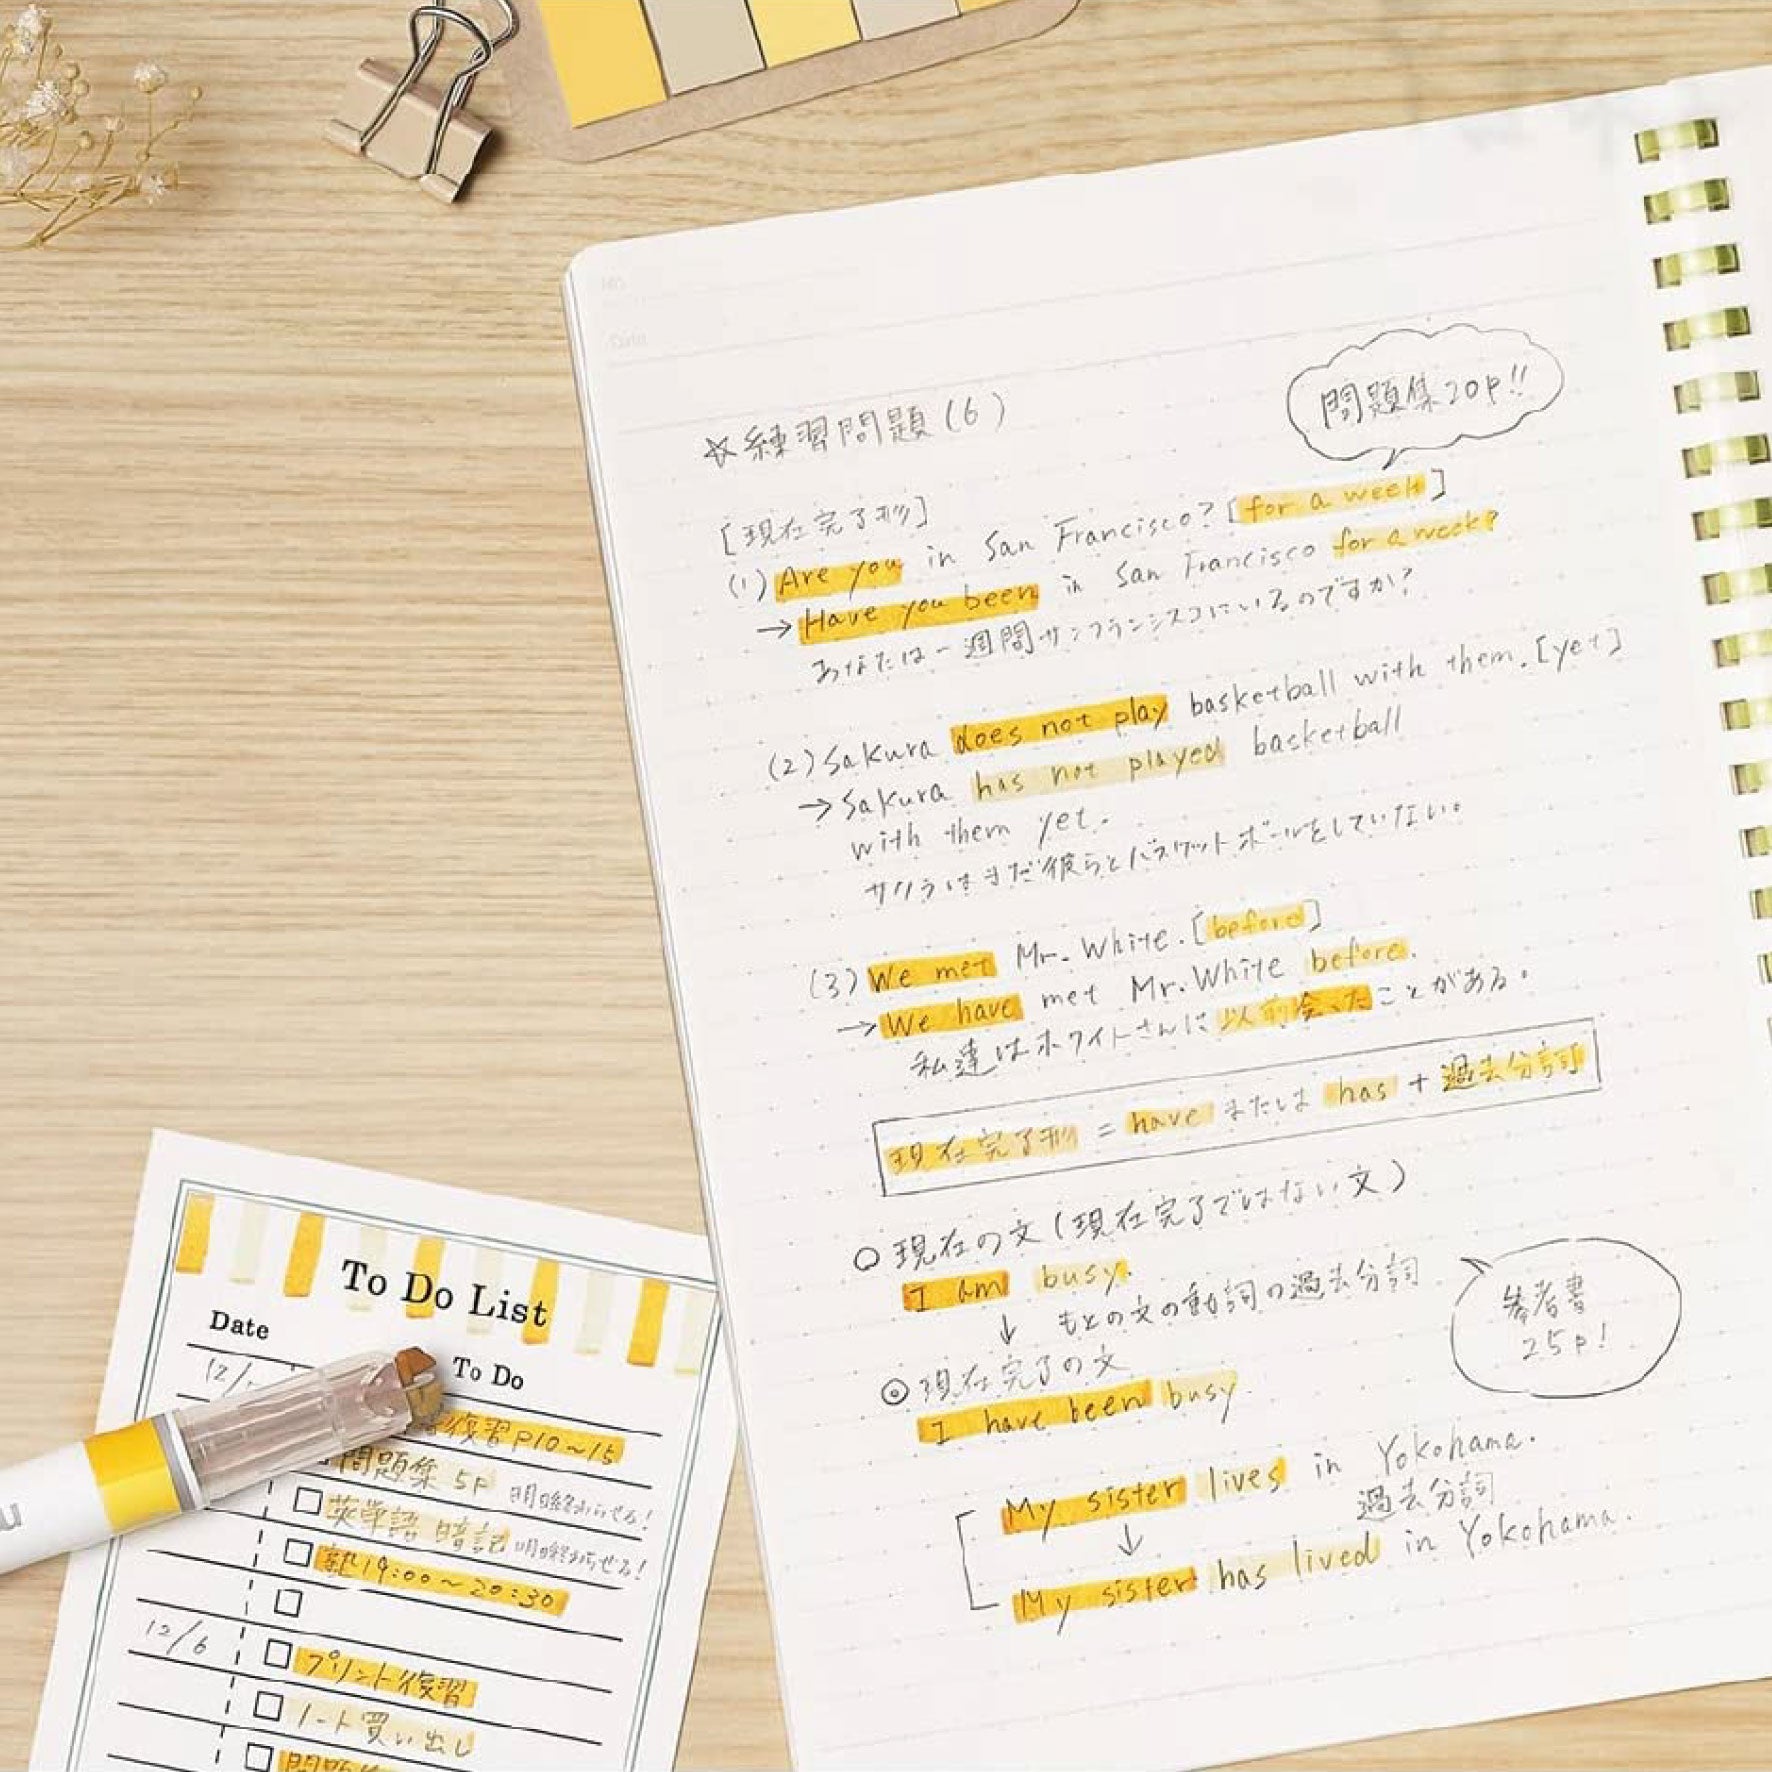 ☆練習問題(6)
問題集20P!!
[現在完了形]
(1) Are you in San Francisco? [for a week]
→ Have you been in San Francisco for a week?
あなたは一週間サンフランシスコにいるのですか?
(2) Sakura does not play basketball with them. [yet]
→ Sakura has not played basketball
with them yet.
サクラはまだ彼らとバスケットボールをしていない。
(3) We met Mr. White. [before]
→ We have met Mr. White before.
私達はホワイトさんに以前会ったことがある。
現在完了形 = have または has + 過去分詞
○現在の文(現在完了ではない文)
I am busy.
↓ もとの文の動詞の過去分詞
◎現在完了の文
I have been busy.
参考書
25P!
My sister lives in Yokohama.
↓ 過去分詞
My sister has lived in Yokohama.
To Do List
Date
To Do
12/
復習P10~15
問題集 5P
英単語 暗記
塾19:00~20:30
12/6
プリント復習
ノート買い出し